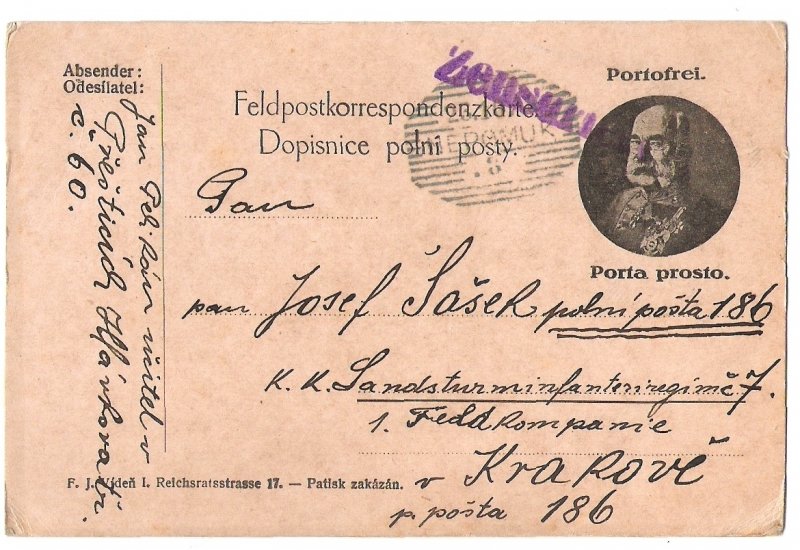 Absender:
Odesílatel:
Jan Pelikán učitel v
Přešticích Hlávkova tř.
č. 60.
Feldpostkorrespondenzkarte.
Dopisnice polní pošty.
Portofrei.
Porta prosto.
Pan
pan Josef Šašek polní pošta 186
K. K. Landsturminfanterieregim č 7.
1. Feldkompanie
v Krakově
p. pošta 186
F. J. Vídeň I. Reichsratsstrasse 17. — Patisk zakázán.